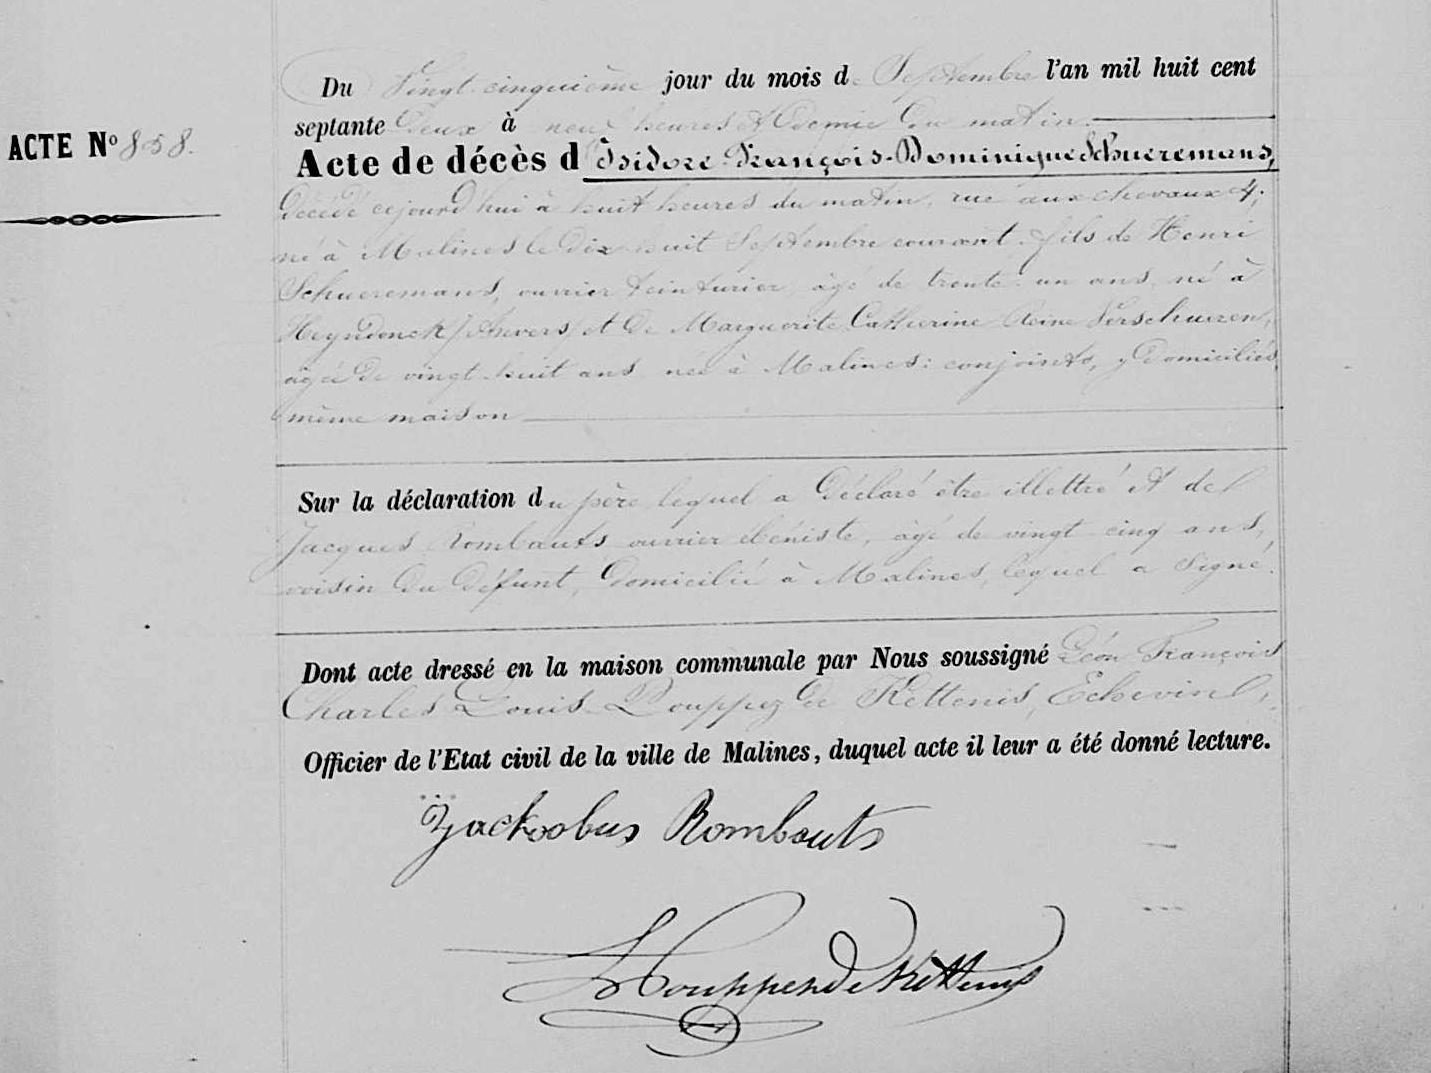 Du Vingt cinquième jour du mois de Septembre l'an mil huit cent
ACTE Nº 858.
septante deux à neuf heures et demie du matin.
Acte de décès d'Isidore-François-Dominique Schueremans,
décédé cejourd'hui à huit heures du matin, rue aux chevaux 4;
né à Malines le dix-huit Septembre courant. fils de Henri
Schueremans, ouvrier teinturier, âgé de trente-un ans, né à
Heyndonck /Anvers/ et de Marguerite Catherine Reine Verschueren,
âgée de vingt-huit ans née à Malines: conjoints, y domiciliés,
même maison
Sur la déclaration du père lequel a déclaré être illettré et de
Jacques Rombauts ouvrier ébéniste, âgé de vingt cinq ans,
voisin du défunt, domicilié à Malines, lequel a signé.
Dont acte dressé en la maison communale par Nous soussigné Léon François
Charles Louis Pouppez de Kettenis, Echevin,
Officier de l'Etat civil de la ville de Malines, duquel acte il leur a été donné lecture.
Jackoobus Rombouts
LPouppez de Kettenis